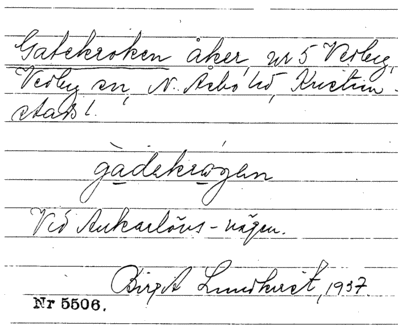 Gatekroken åker, nr 5 Verby,
Verby sn, N. Åsbo hd, Kristian-
stads l.
gàdekrógen
Vid Ankarlövs-vägen.
Birgit Lundkvist, 1937.
Nr 5506.